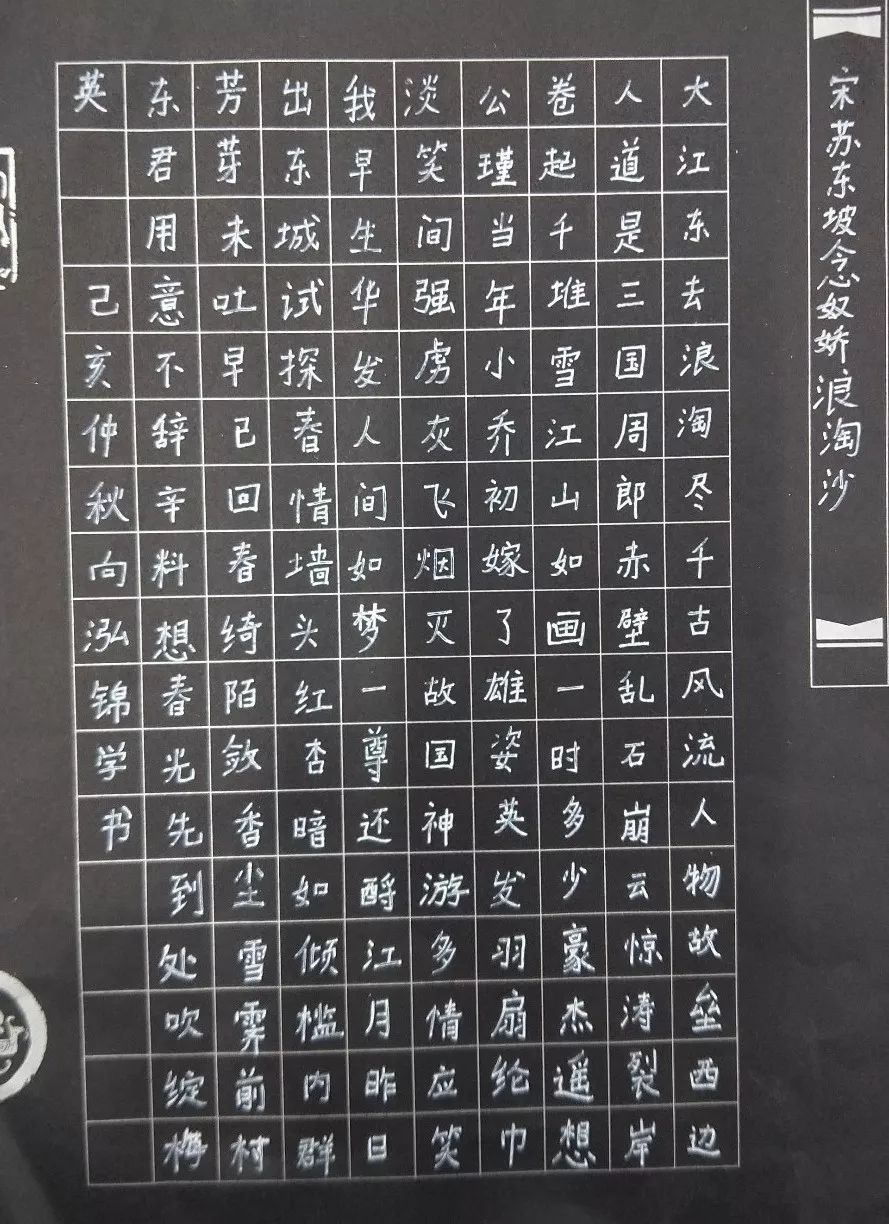 宋苏东坡念奴娇浪淘沙
大江东去浪淘尽千古风流人物故垒西边
人道是三国周郎赤壁乱石崩云惊涛裂岸
卷起千堆雪江山如画一时多少豪杰遥想
公瑾当年小乔初嫁了雄姿英发羽扇纶巾
淡笑间强虏灰飞烟灭故国神游多情应笑
我早生华发人间如梦一尊还酹江月昨日
出东城试探春情墙头红杏暗如倾槛内群
芳芽未吐早已回春绮陌敛香尘雪霁前村
东君用意不辞辛料想春光先到处吹绽梅
英 己亥仲秋向泓锦学书